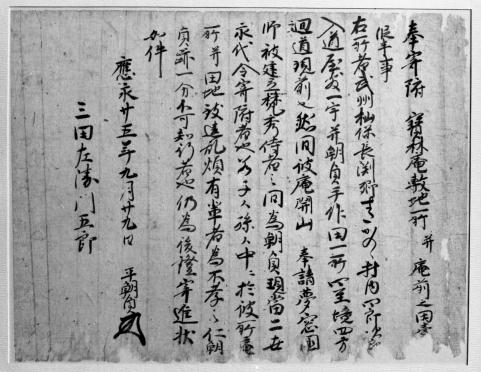 奉寄附 寳林庵敷地一所 并 庵前之田壹
限年事
右一所者武州杣保長渕郷 村内
入道屋敷一宇并朝貞手作田一所 堺四方
迴道現前也然間彼庵開山 奉請夢窓国
師被建立梵秀侍者之間為朝貞現當二世
永代令寄附者也若子々孫々中ニ於彼所庵
所并田地致違乱煩有輩者為不孝之仁朝
貞跡一分不可知行者也仍為後證寄進状
如件
應永廿五年九月廿九日 平朝貞
三田左衛門五郎